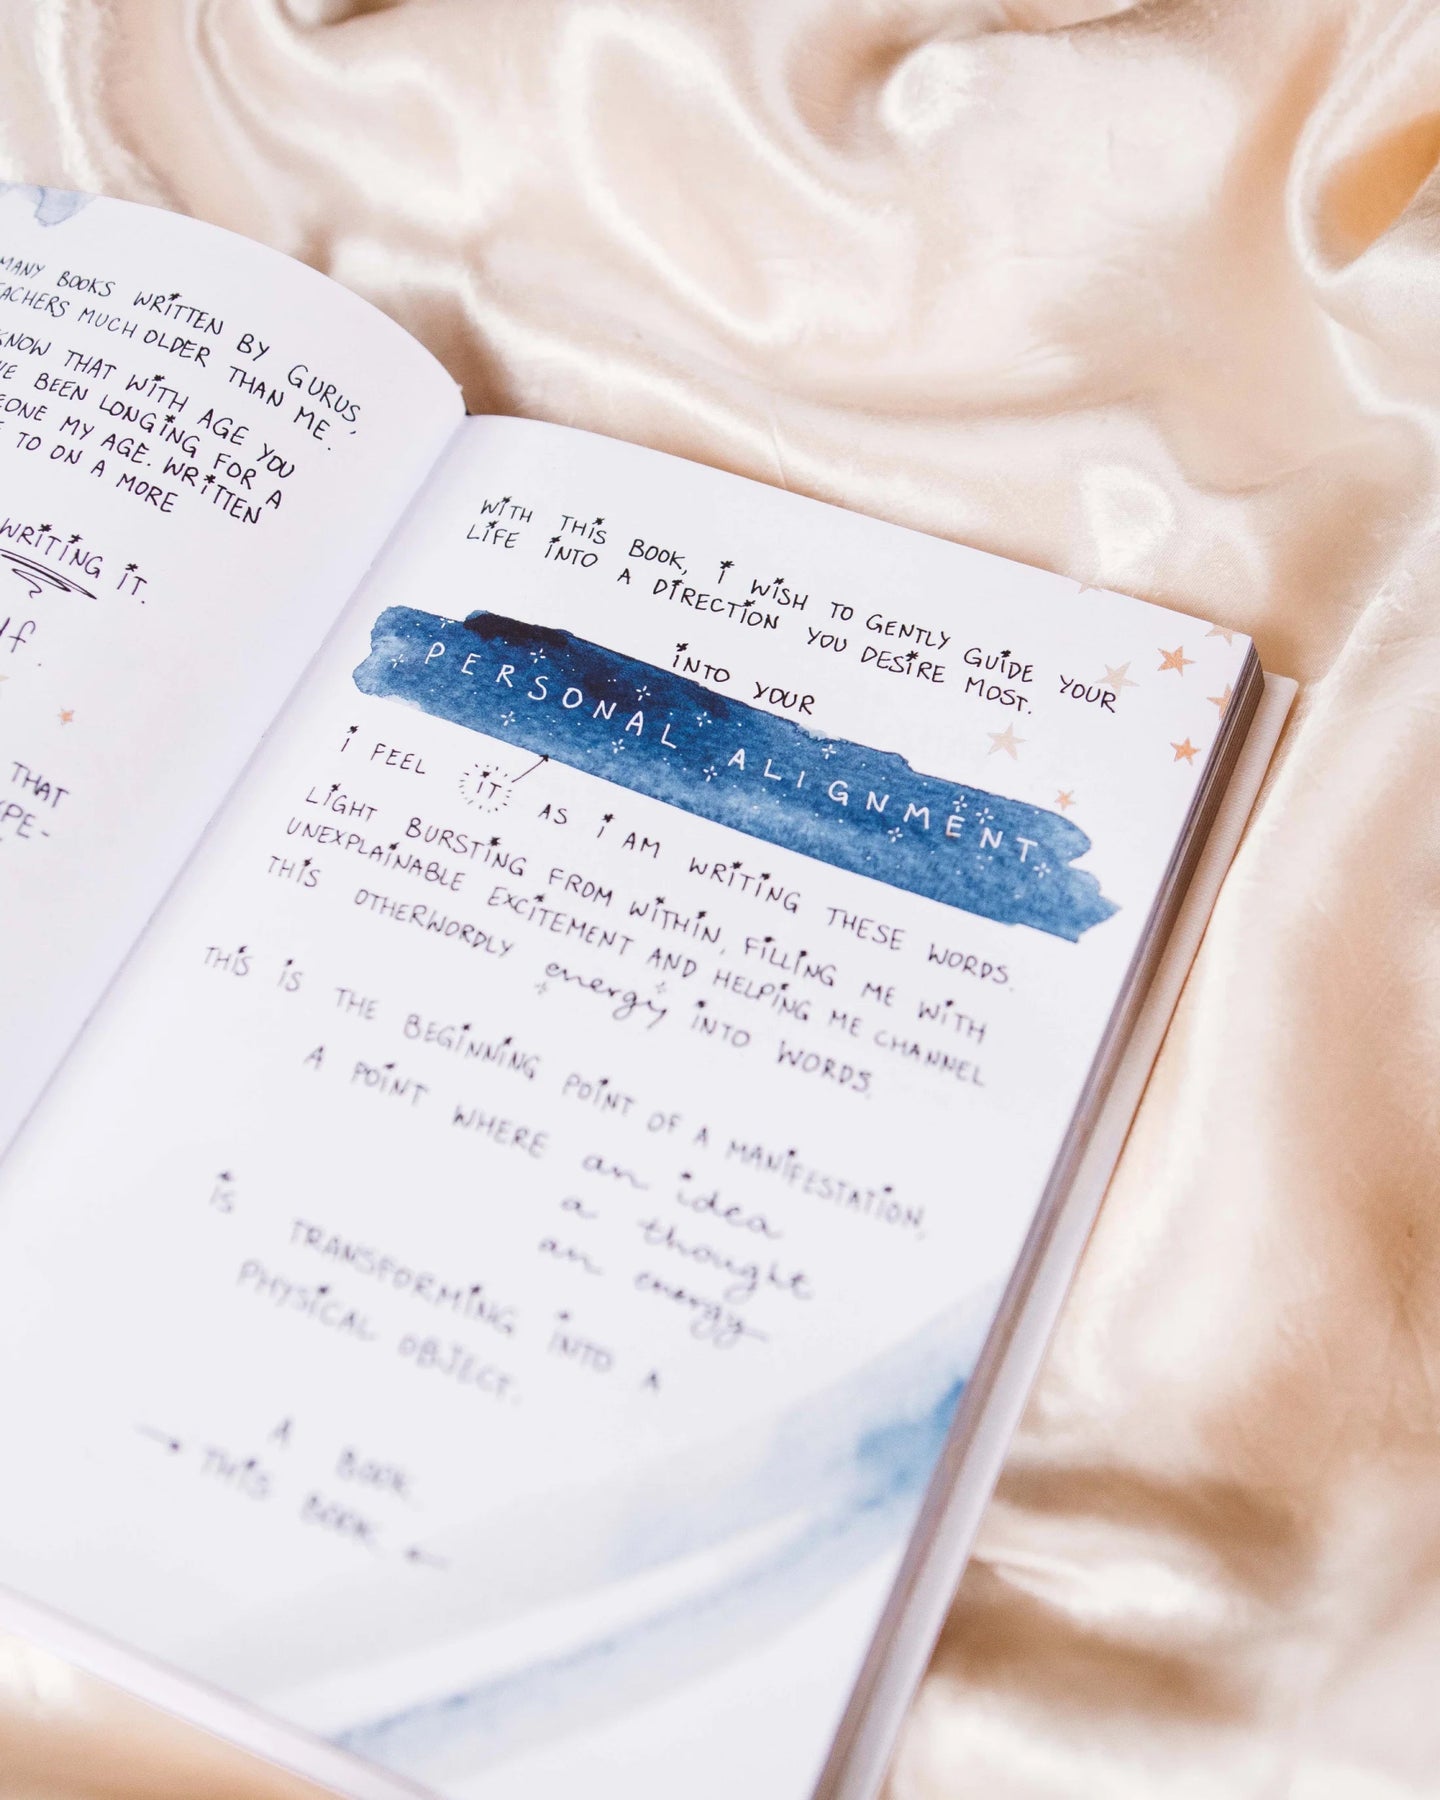 MANY BOOKS WRITTEN BY GURUS,
MUCH OLDER THAN ME.
KNOW THAT WITH AGE YOU
BEEN LONGING FOR A
MY AGE. WRITTEN
TO ON A MORE
WRITING IT.
THAT
WITH THIS BOOK, I WISH TO GENTLY GUIDE YOUR
LIFE INTO A DIRECTION YOU DESIRE MOST.
INTO YOUR
PERSONAL ALIGNMENT
I FEEL IT AS I AM WRITING THESE WORDS.
LIGHT BURSTING FROM WITHIN, FILLING ME WITH
UNEXPLAINABLE EXCITEMENT AND HELPING ME CHANNEL
THIS OTHERWORDLY energy INTO WORDS.
THIS IS THE BEGINNING POINT OF A MANIFESTATION,
A POINT WHERE an idea
a thought
an energy
IS TRANSFORMING INTO A
PHYSICAL OBJECT.
A BOOK
→ THIS BOOK ←